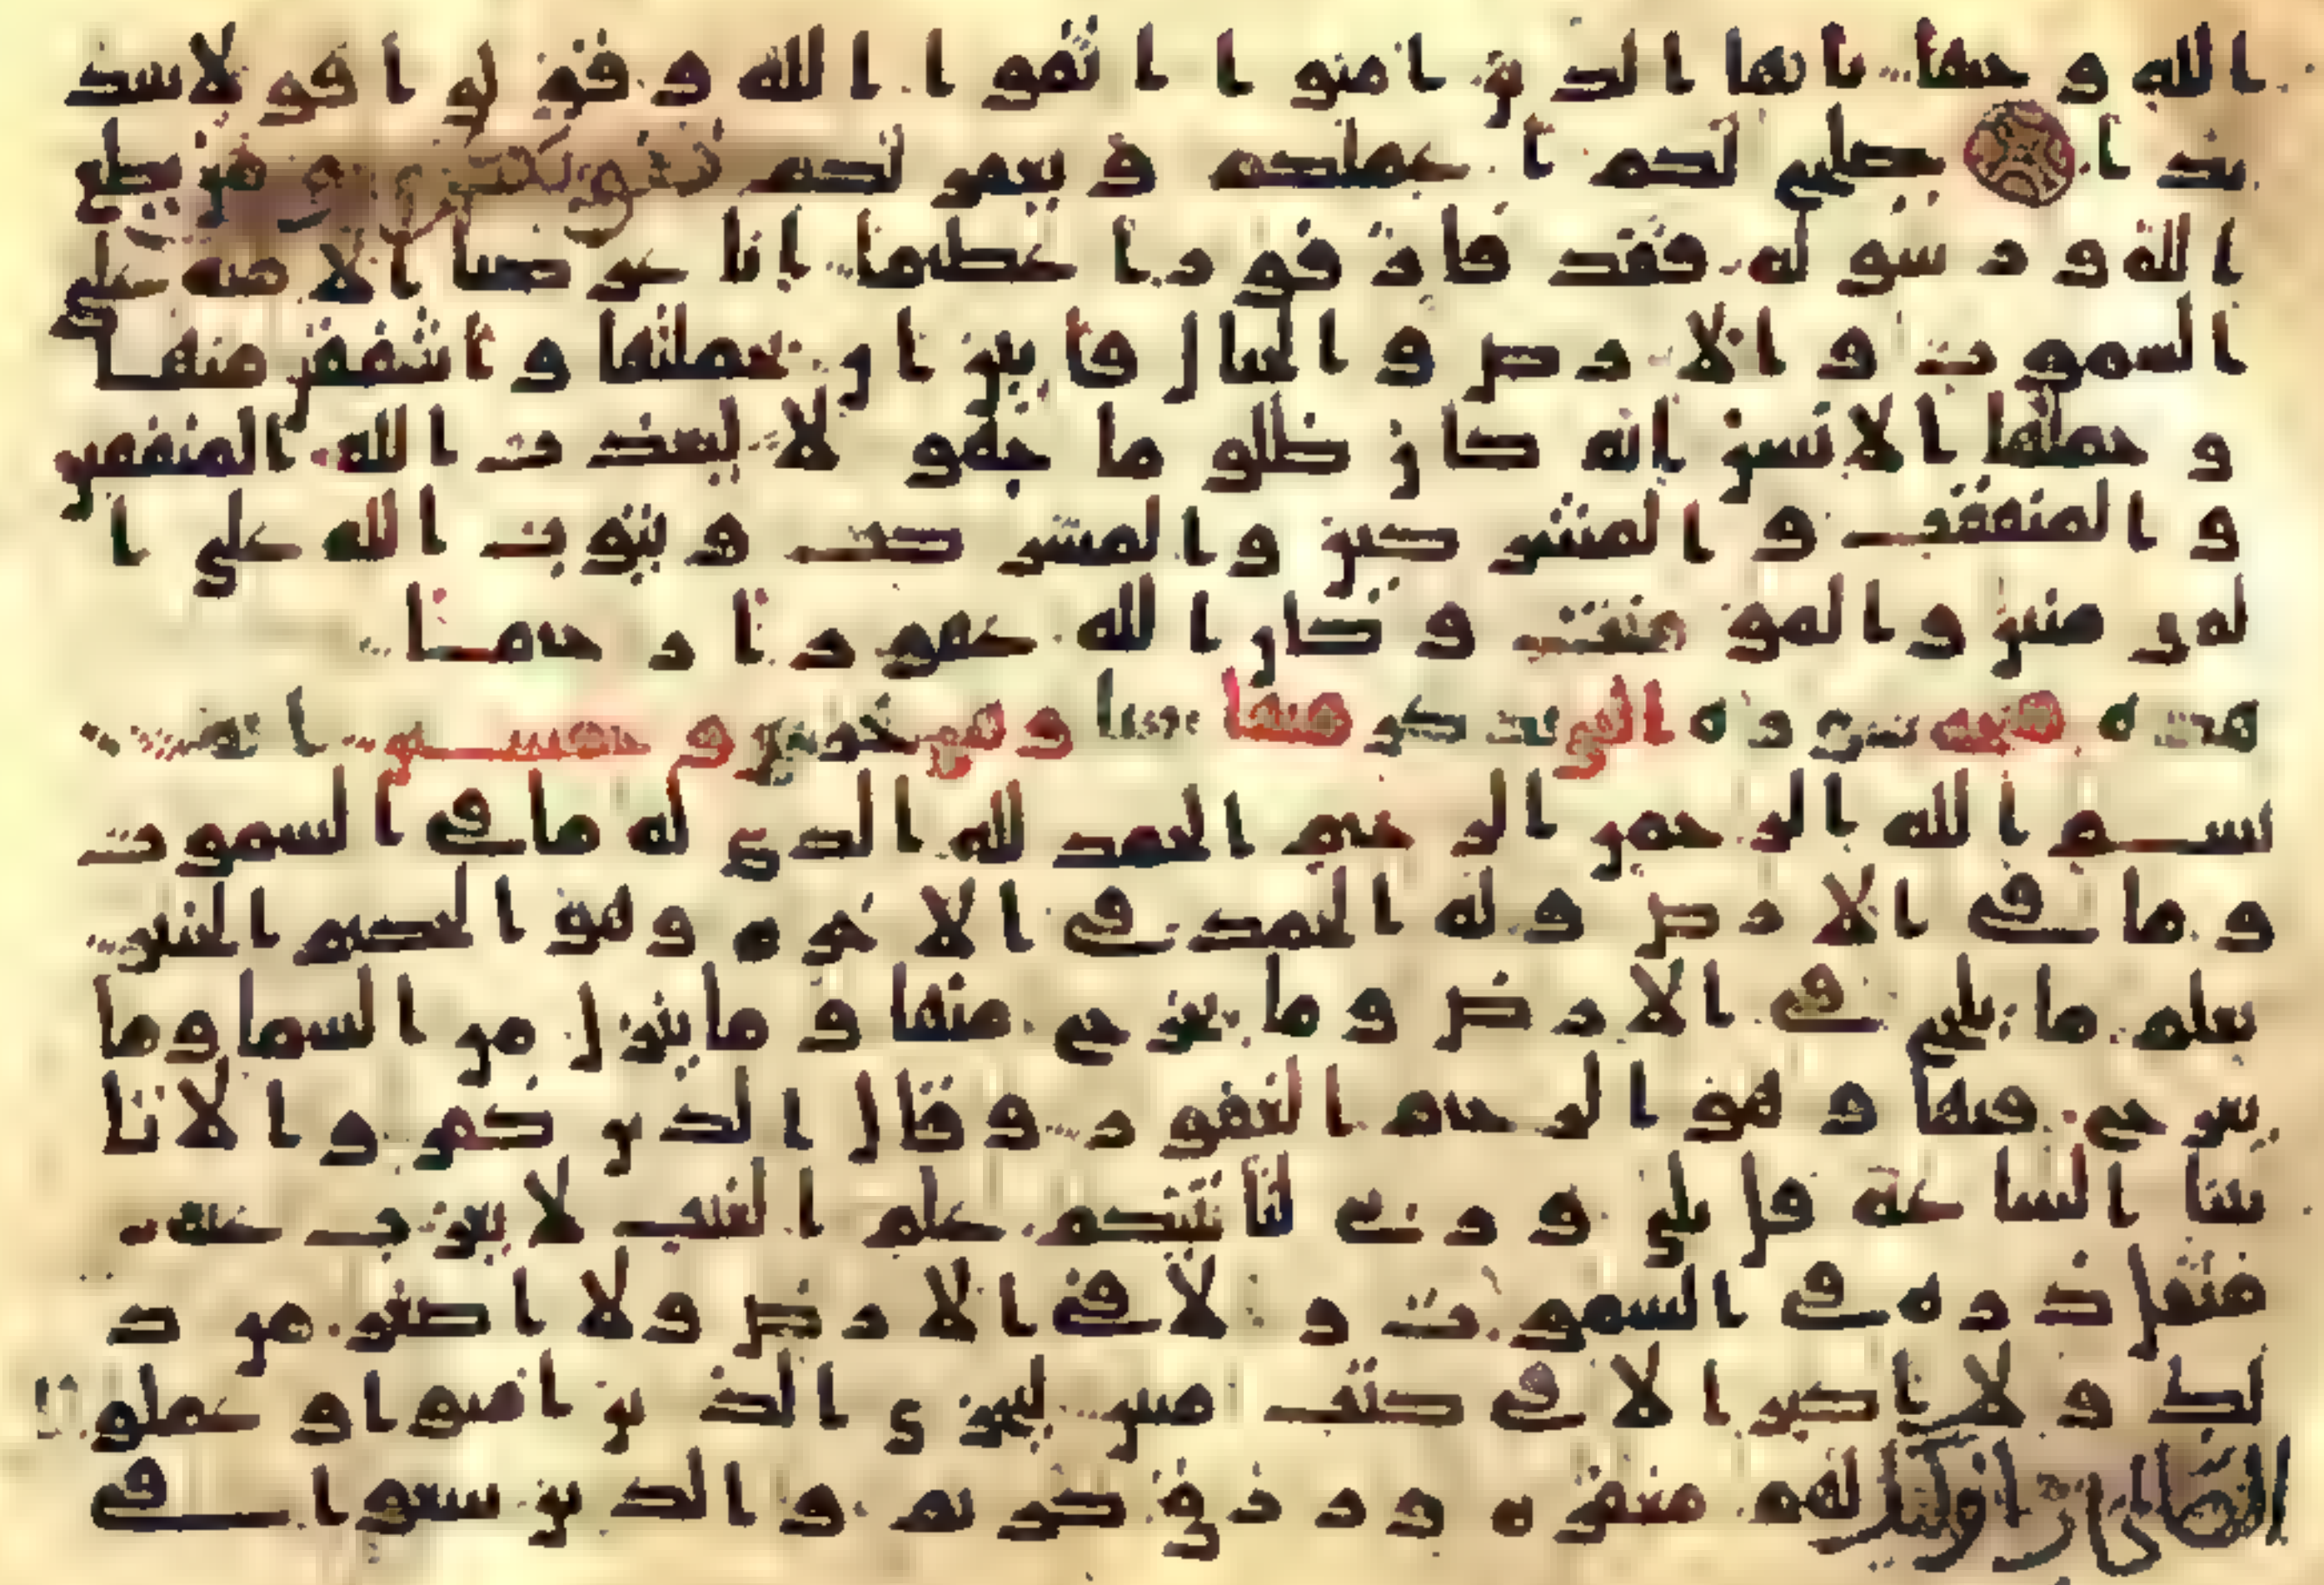 الله وجيها يايها الذين امنوا اتقوا الله وقولوا قولا سد
يدا يصلح لكم اعملكم ويغفر لكم ذنوبكم ومن يطع
الله ورسوله فقد فاز فوزا عظيما انا عرضنا الامنة على
السموت والارض والجبال فابين ان يحملنها واشفقن منها
وحملها الانسن انه كان ظلوما جهولا ليعذب الله المنفقين
والمنفقت والمشركين والمشركت ويتوب الله على ا
لمومنين والمومنت وكان الله غفورا رحيما
التي يذكر فيها سبا وهي
بسم الله الرحمن الرحيم الحمد لله الذي له ما في السموت
وما في الارض وله الحمد في الاخرة وهو الحكيم الخبير
يعلم ما يلج في الارض وما يخرج منها وما ينزل من السما وما
يعرج فيها وهو الرحيم الغفور وقال الذين كفروا لا تا
تينا الساعة قل بلى وربي لتاتينكم علم الغيب لا يعزب عنه
مثقال ذرة في السموت ولا في الارض ولا اصغر من ذ
لك ولا اكبر الا في كتب مبين ليجزي الذين امنوا وعملوا
الصالحات اوليك لهم مغفرة ورزق كريم والذين سعوا في